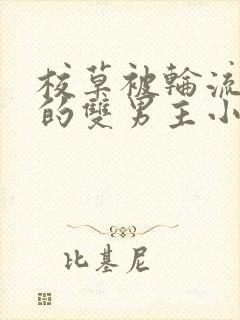 校草被輪流
的雙男主小
比基尼